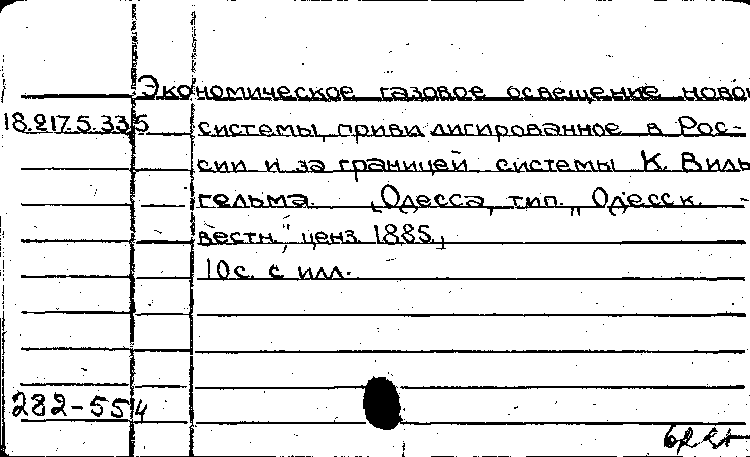 Экономическое газовое освещение новой
18.217.5.335 системы, привилигированное в Рос-
сии и за границей системы К. Виль
гельма. [Одесса, тип. „Одесск.
вестн.", ценз. 1885.]
10 с. с илл.
282-554